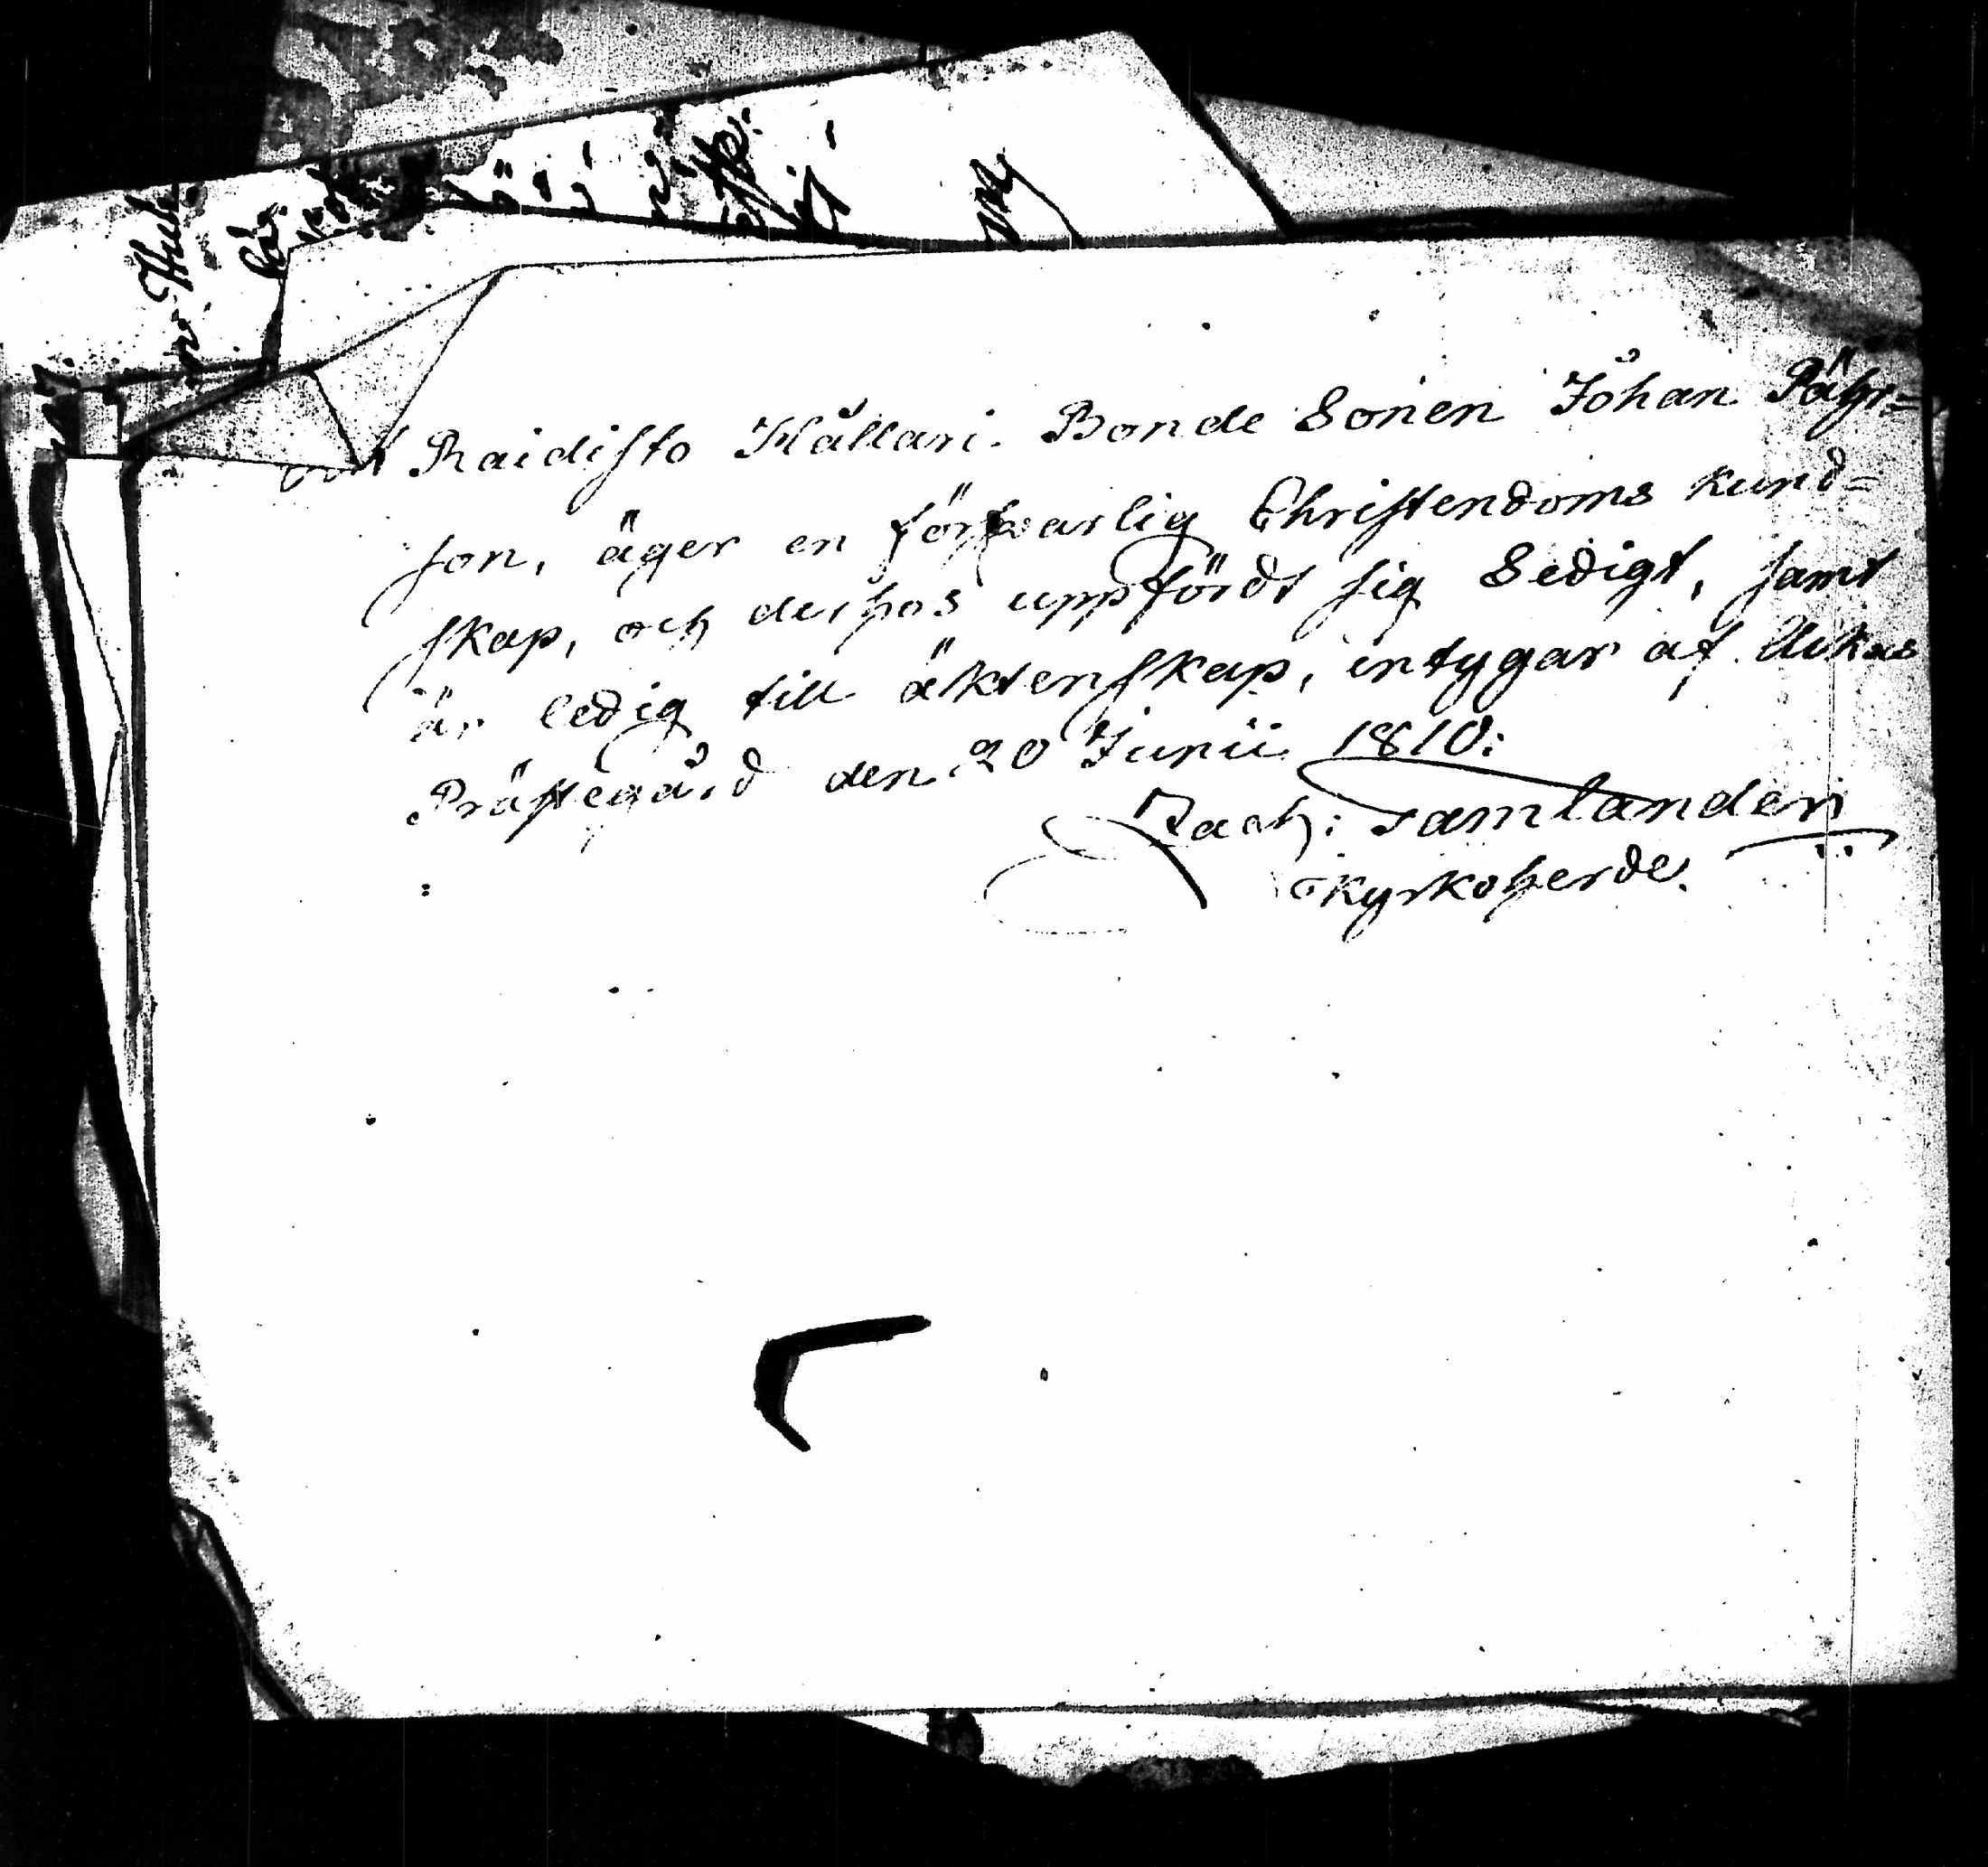 att Raidisto Kållari Bonde Sonen Johan Pähr=
son, äger en försvarlig Christendoms kund=
skap, och derhos uppfördt sig Sedigt, samt
är ledig till äktenskap, intygar af
Prästegård den 20 Junii 1810:
Zach: Tamlander
Kyrkoherde.